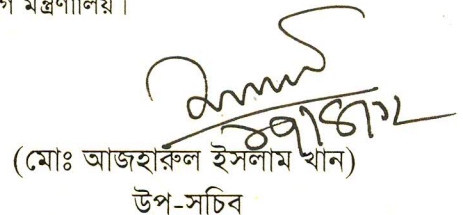 মন্ত্রণালয়।
(মোঃ আজহারুল ইসলাম খান)
উপ-সচিব